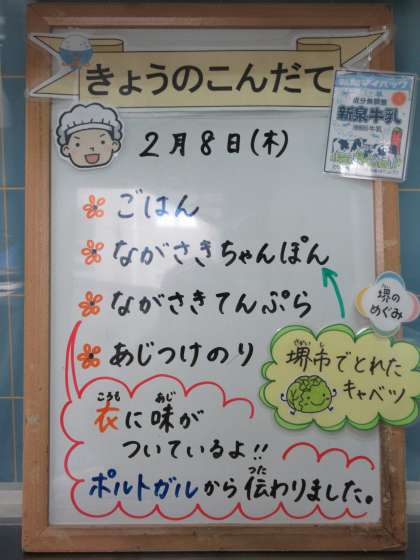 きょうのこんだて
2月8日(木)
ごはん
ながさきちゃんぽん
ながさきてんぷら
あじつけのり
新泉牛乳
堺の
めぐみ
堺市でとれた
キャベツ
衣に味が
ついているよ!!
ポルトガルから伝わりました。